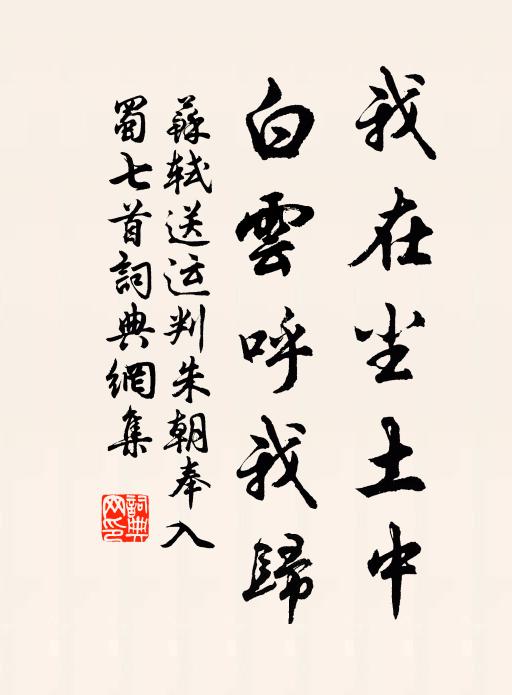 我在尘土中
白雲呼我歸
蘇軾送运判朱朝奉入
蜀七首詞典網集
詞典
网印